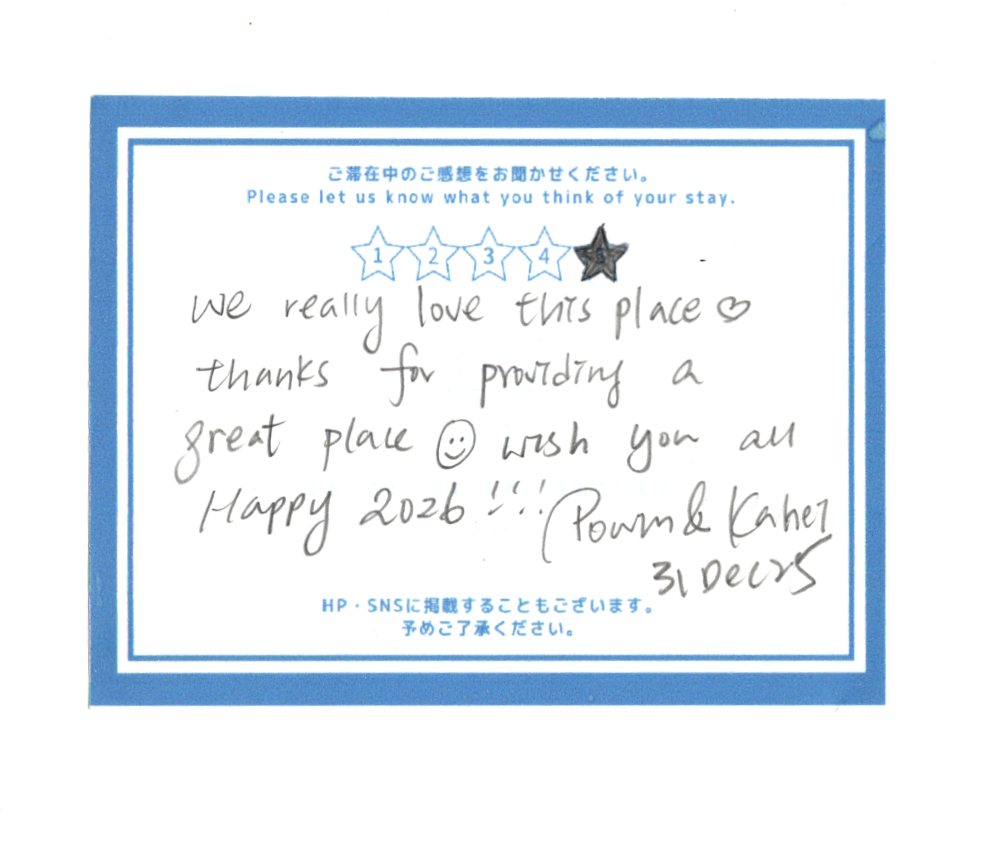 ご滞在中のご感想をお聞かせください。
Please let us know what you think of your stay.
1 2 3 4
we really love this place ♡
thanks for providing a
great place ☺ wish you all
Happy 2026 !!!
&
31 Dec 25
HP・SNSに掲載することもございます。
予めご了承ください。